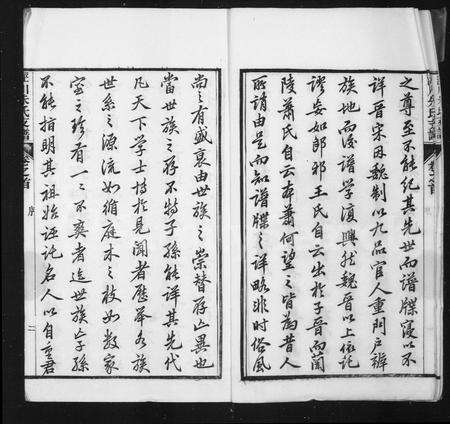 之尊至不能紀其先世而譜牒寖以不
詳晉宋因魏制以九品官人重門戶辨
族地而後譜學復興然魏晉以上依託
謬妄如郎邪王氏自云出於子晉而蘭
陵蕭氏自云本蕭何望之皆為昔人
所譏由是而知譜牒之詳略非時俗風
尚之有盛衰由世族之崇替存亡異也
當世族之存不特子孫能詳其先代
凡天下學士博於見聞者歷舉各族
世系之源流如循庭木之枝如數家
室之珍有一二不爽者迨世族亡子孫
不能指明其祖始誣託名人以自重君
涇川朱氏支譜
卷之首
序
二